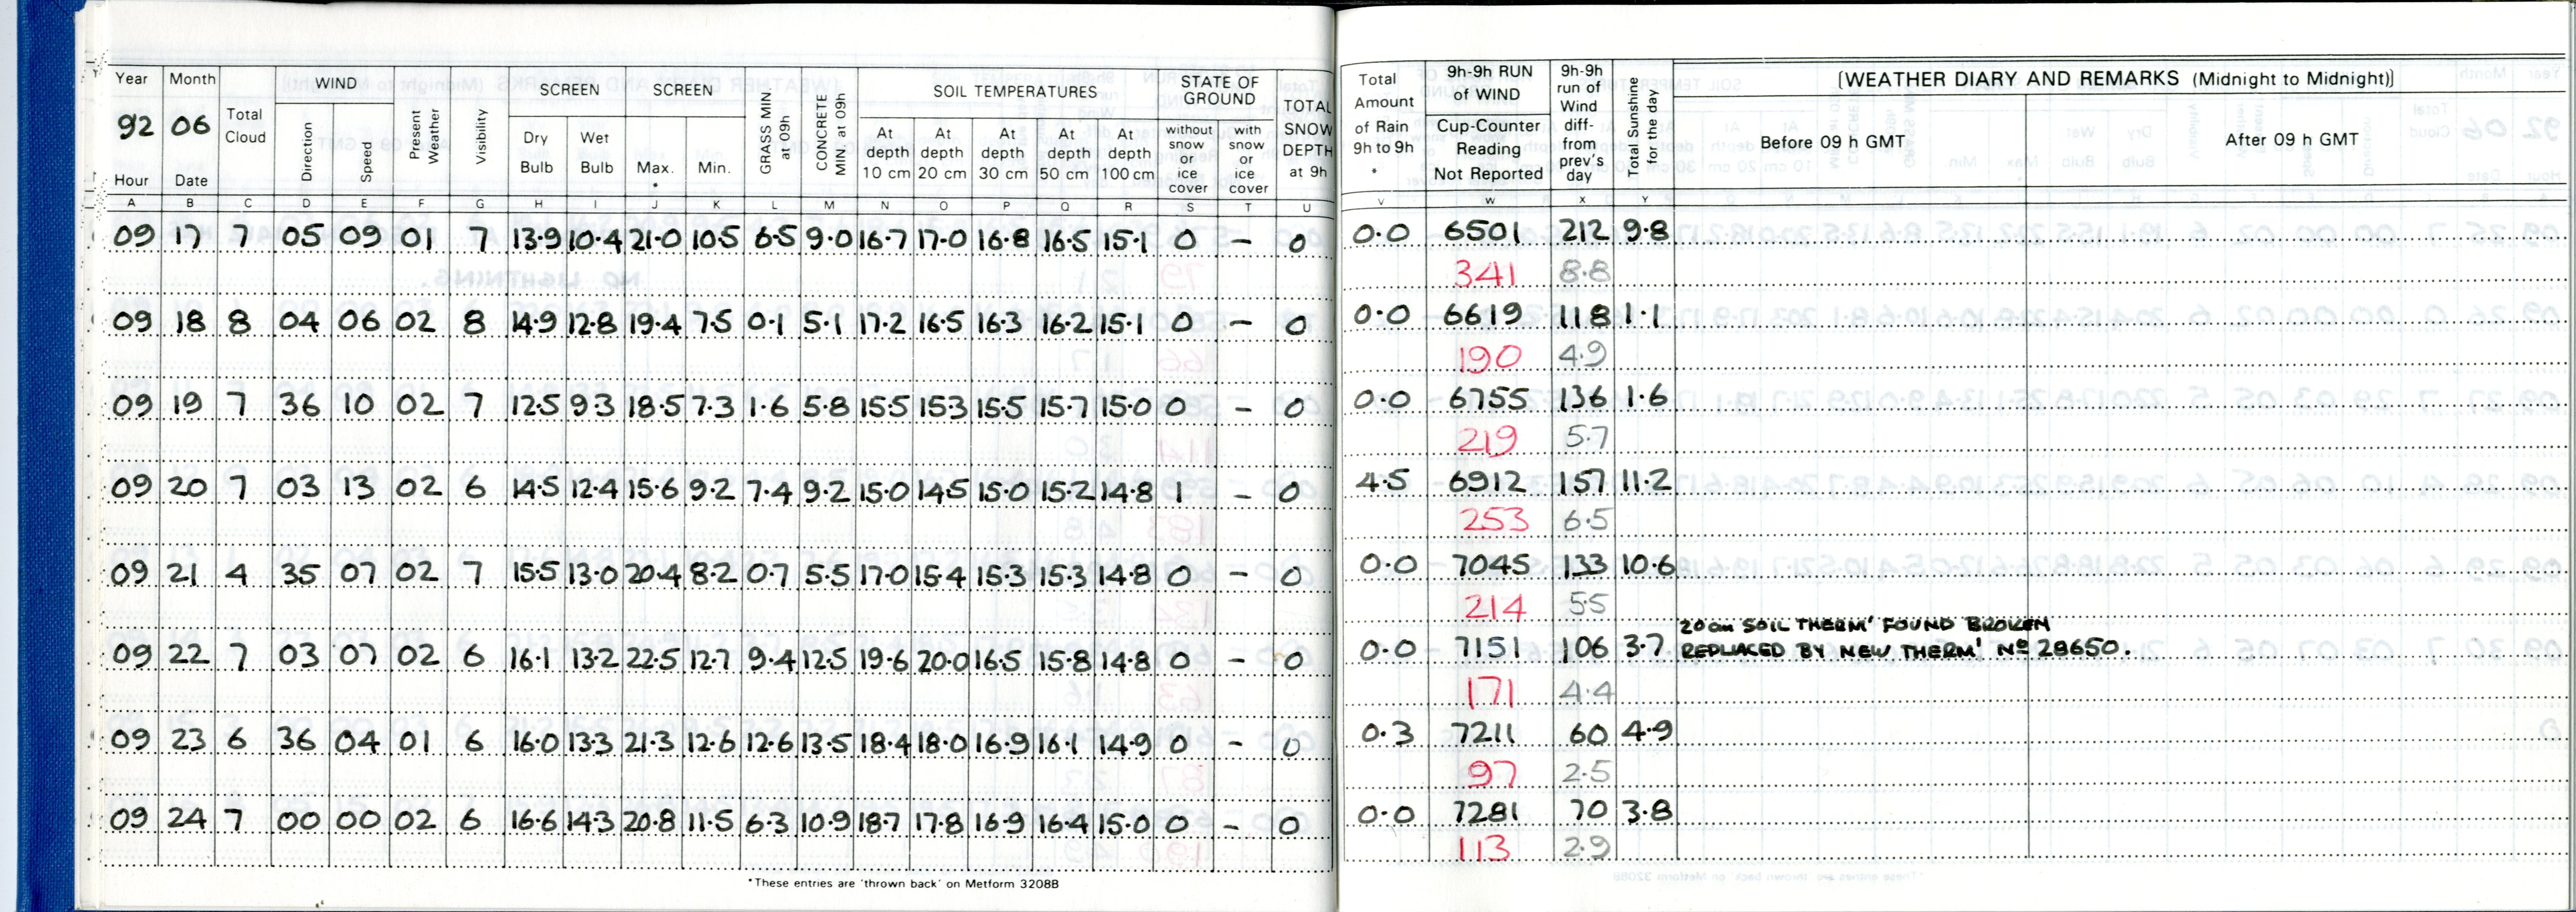 Year Month Total Cloud WIND Present Weather Visibility SCREEN SCREEN GRASS MIN at 09h CONCRETE MIN at 09h SOIL TEMPERATURES STATE OF GROUND TOTAL SNOW DEPTH at 9h Total Amount of Rain 9h to 9h * 9h-9h RUN of WIND 9h-9h run of Wind diff- from prev's day Total Sunshine for the day (WEATHER DIARY AND REMARKS (Midnight to Midnight))
92 06 Direction Speed Dry Bulb Wet Bulb Max. * Min. At depth 10 cm At depth 20 cm At depth 30 cm At depth 50 cm At depth 100 cm without snow or ice cover with snow or ice cover Cup-Counter Reading Not Reported Before 09 h GMT After 09 h GMT
Hour Date
A B C D E F G H I J K L M N O P Q R S T U V W X Y
09 17 7 05 09 01 7 13.9 10.4 21.0 10.5 6.5 9.0 16.7 17.0 16.8 16.5 15.1 0 – 0 0.0 6501 212 9.8
341 8.8
09 18 8 04 06 02 8 14.9 12.8 19.4 7.5 0.1 5.1 17.2 16.5 16.3 16.2 15.1 0 – 0 0.0 6619 118 1.1
190 4.9
09 19 7 36 10 02 7 12.5 9.3 18.5 7.3 1.6 5.8 15.5 15.3 15.5 15.7 15.0 0 – 0 0.0 6755 136 1.6
219 5.7
09 20 7 03 13 02 6 14.5 12.4 15.6 9.2 7.4 9.2 15.0 14.5 15.0 15.2 14.8 1 – 0 4.5 6912 157 11.2
253 6.5
09 21 4 35 07 02 7 15.5 13.0 20.4 8.2 0.7 5.5 17.0 15.4 15.3 15.3 14.8 0 – 0 0.0 7045 133 10.6
214 5.5
20cm SOIL THERM' FOUND BROKEN
09 22 7 03 07 02 6 16.1 13.2 22.5 12.7 9.4 12.5 19.6 20.0 16.5 15.8 14.8 0 – 0 0.0 7151 106 3.7 REPLACED BY NEW THERM' Nº 28650.
171 4.4
09 23 6 36 04 01 6 16.0 13.3 21.3 12.6 12.6 13.5 18.4 18.0 16.9 16.1 14.9 0 – 0 0.3 7211 60 4.9
97 2.5
09 24 7 00 00 02 6 16.6 14.3 20.8 11.5 6.3 10.9 18.7 17.8 16.9 16.4 15.0 0 – 0 0.0 7281 70 3.8
113 2.9
*These entries are 'thrown back' on Metform 3208B